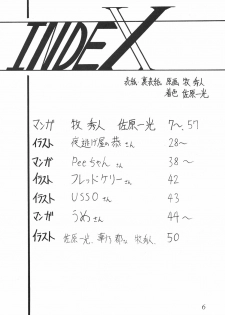 INDEX
表紙 裏表紙 原画 牧 秀人
着色 佐原一光
マンガ 牧 秀人 佐原一光 7～、57
イラスト 夜逃げ屋の恭さん 28～
マンガ Peeちゃんさん 38～
イラスト フレッドケリーさん 42
イラスト USSOさん 43
マンガ うめさん 44～
イラスト 佐原一光、牧秀人 50
6